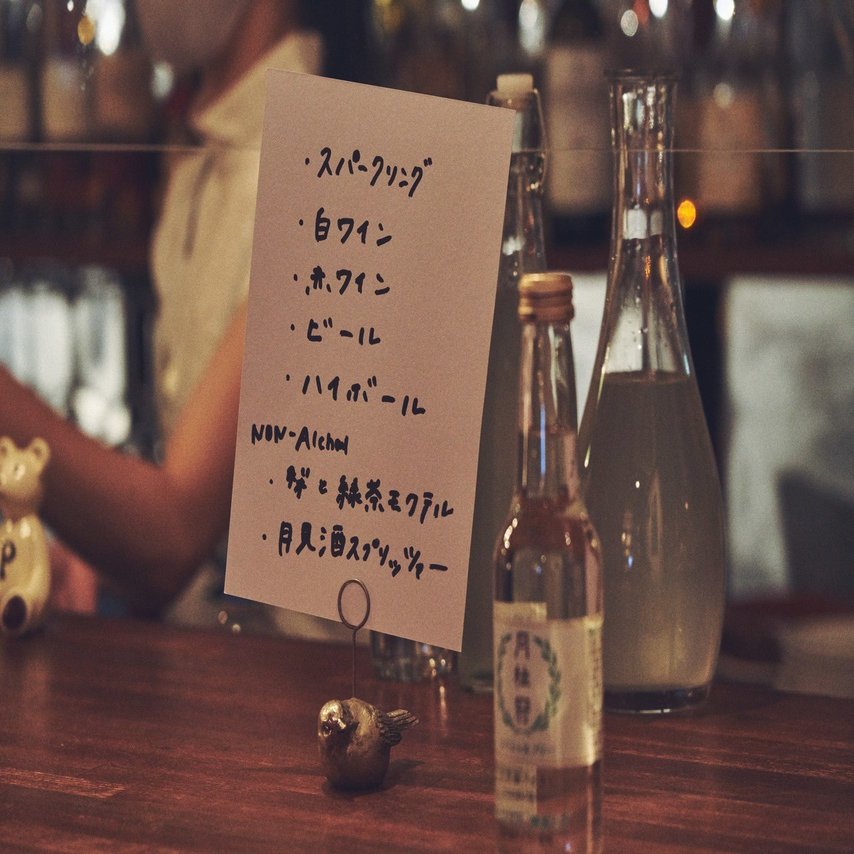 ・スパークリング
・白ワイン
・赤ワイン
・ビール
・ハイボール
NON-Alchol
・と緑茶モクテル
・月見酒スプリッツァー
月桂冠
P